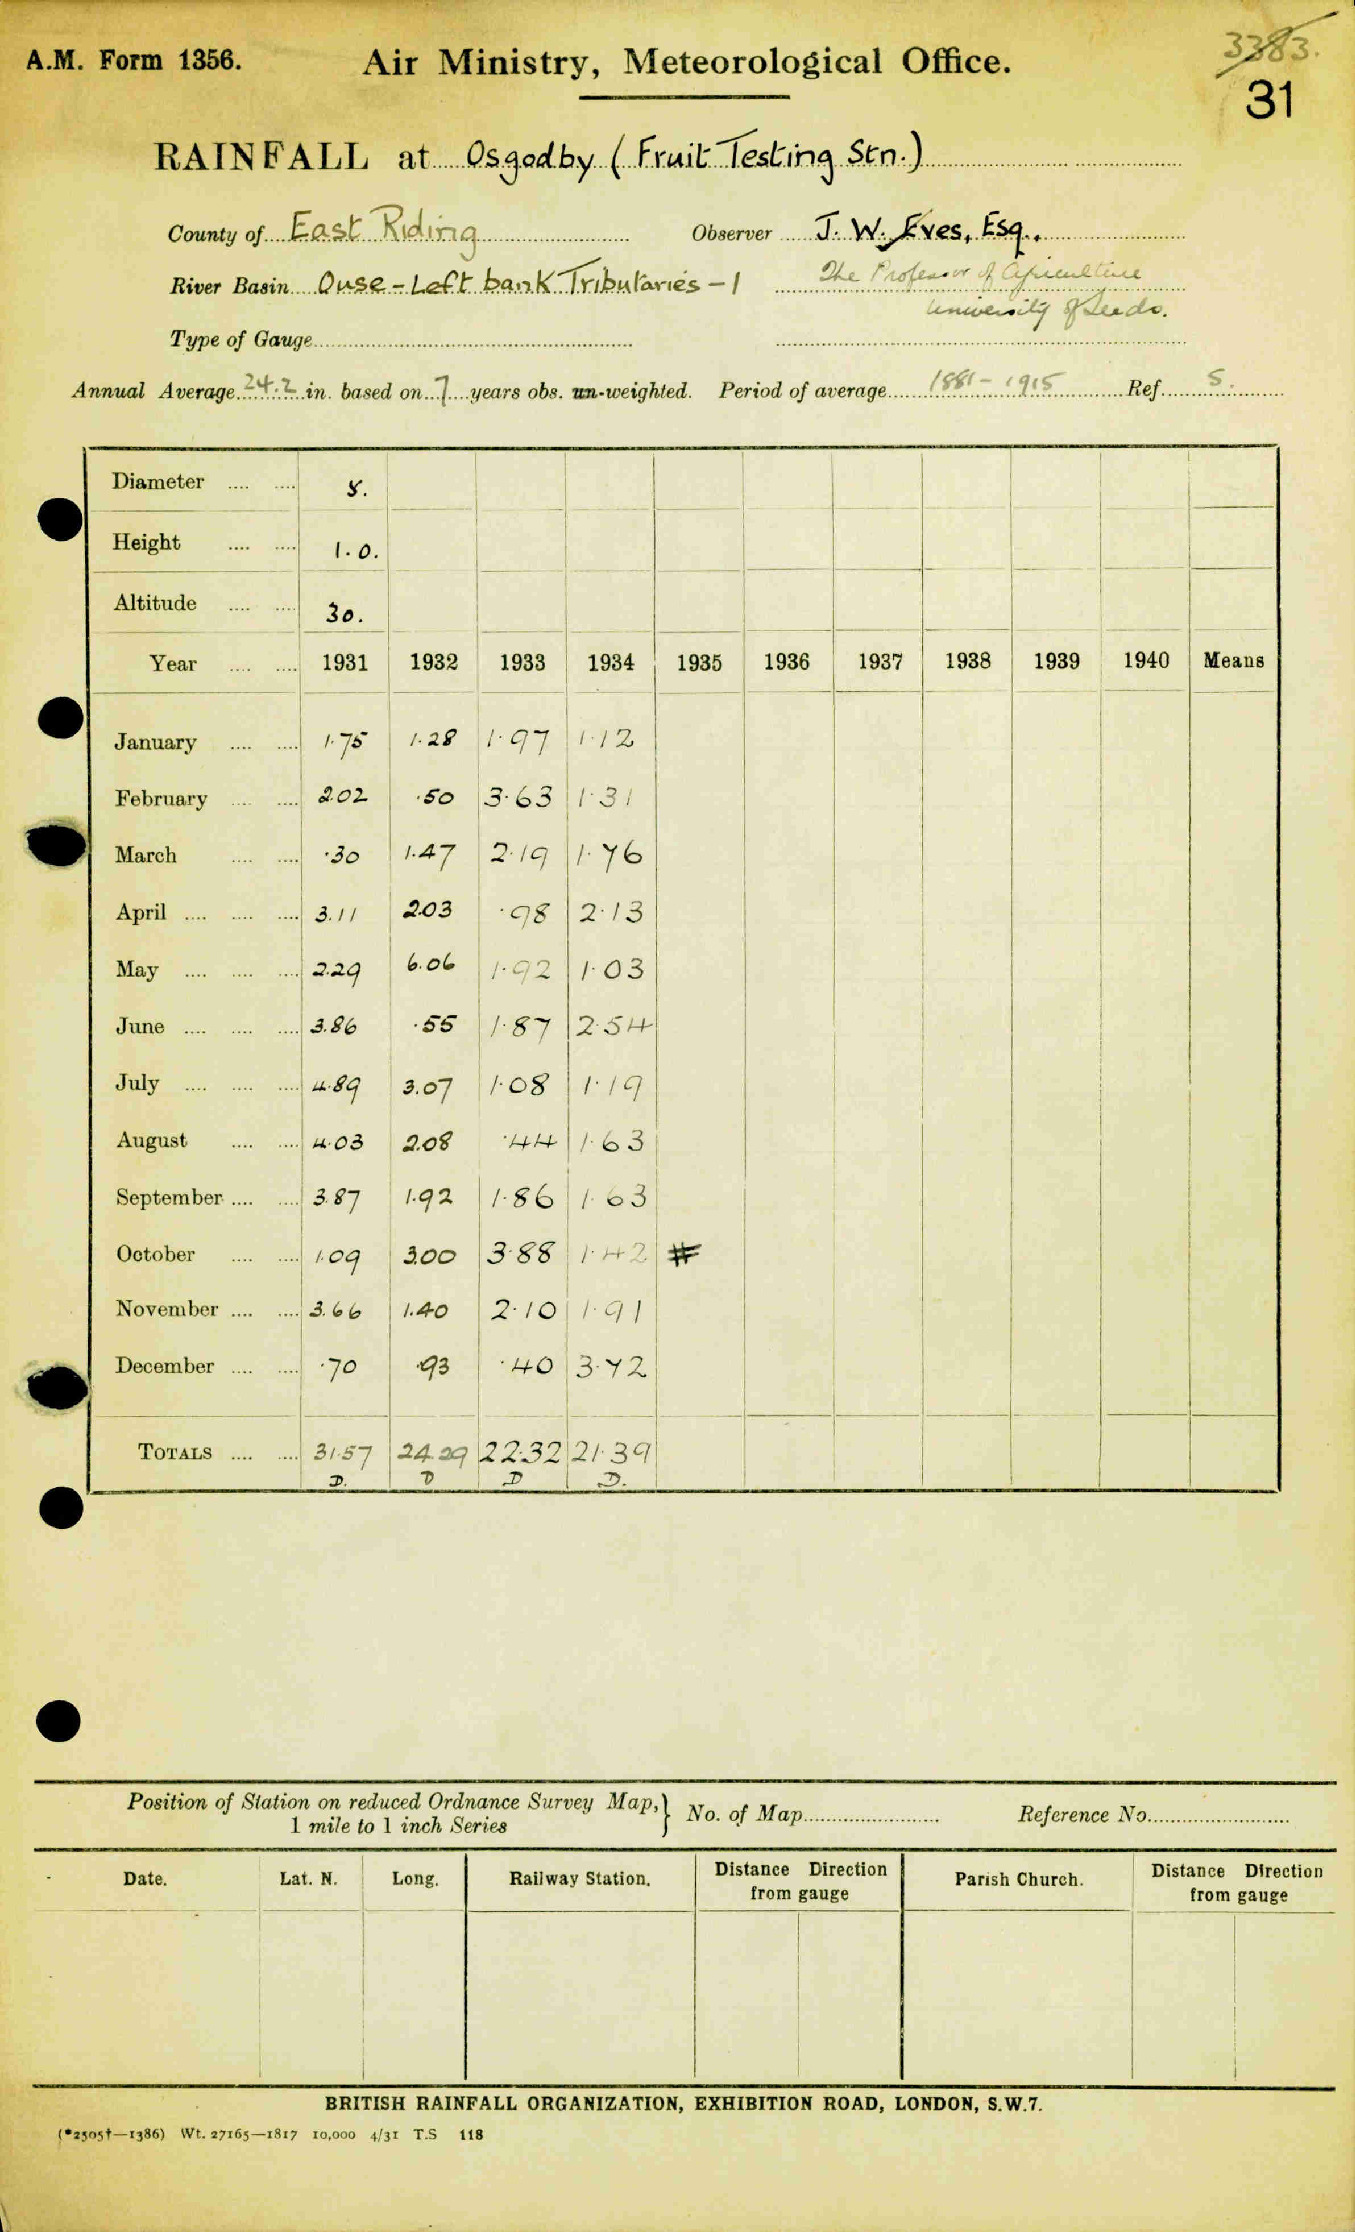 3383.
A.M. Form 1356. Air Ministry, Meteorological Office.
31
RAINFALL at Osgodby (Fruit Testing Stn.)
County of East Riding Observer J. W. Eves, Esq.,
River Basin Ouse - Left bank Tributaries - 1 The Professor of Agriculture
University of Leeds.
Type of Gauge
Annual Average 24.2 in. based on 7 years obs. un-weighted. Period of average 1881 - 1915 Ref. S.
Diameter 8.
Height 1.0.
Altitude 30.
Year 1931 1932 1933 1934 1935 1936 1937 1938 1939 1940 Means
January 1.75 1.28 1.97 1.12
February 2.02 .50 3.63 1.31
March .30 1.47 2.19 1.76
April 3.11 2.03 .98 2.13
May 2.29 6.06 1.92 1.03
June 3.86 .55 1.87 2.54
July 4.89 3.07 1.08 1.19
August 4.03 2.08 .44 1.63
September 3.87 1.92 1.86 1.63
October 1.09 3.00 3.88 1.42 #
November 3.66 1.40 2.10 1.91
December .70 .93 .40 3.72
TOTALS 31.57 24.29 22.32 21.39
D. D D D.
Position of Station on reduced Ordnance Survey Map, } No. of Map Reference No.
1 mile to 1 inch Series
Date. Lat. N. Long. Railway Station. Distance Direction from gauge Parish Church. Distance Direction from gauge
BRITISH RAINFALL ORGANIZATION, EXHIBITION ROAD, LONDON, S.W.7.
(*2505†—1386) Wt. 27165—1817 10,000 4/31 T.S 118